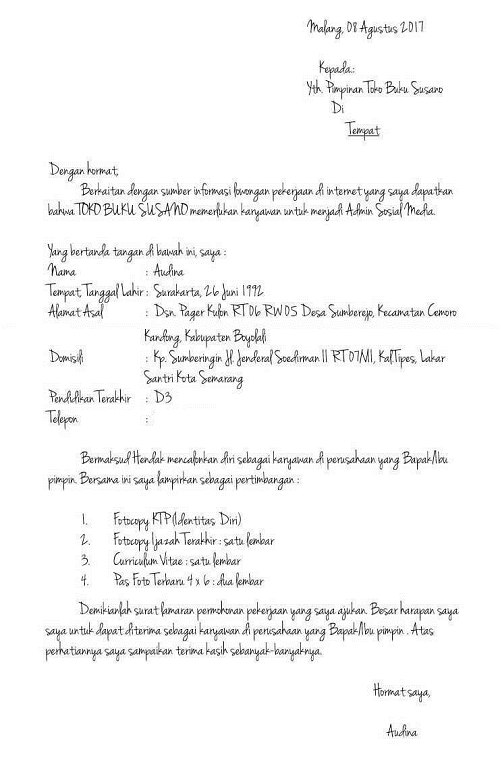 Malang, 08 Agustus 2017
Kepada.:
Yth. Pimpinan Toko Buku Susano
Di
Tempat
Dengan hormat,
Berkaitan dengan sumber informasi lowongan pekerjaan di internet yang saya dapatkan
bahwa TOKO BUKU SUSANO memerlukan karyawan untuk menjadi Admin Sosial Media.
Yang bertanda tangan di bawah ini, saya :
Nama : Audina
Tempat, Tanggal Lahir : Surakarta, 26 Juni 1992
Alamat Asal : Dsn. Pager Kulon RT 06 RW 05 Desa Sumberejo, Kecamatan Cemoro
Kandong, Kabupaten Boyolali
Domisili : Kp. Sumberingin Jl. Jenderal Soedirman 11 RT 07/VII, Kal.Tipes, Lakar
Santri Kota Semarang
Pendidikan Terakhir : D3
Telepon :
Bermaksud Hendak mencalonkan diri sebagai karyawan di perusahaan yang Bapak/Ibu
pimpin. Bersama ini saya lampirkan sebagai pertimbangan :
1. Fotocopy KTP (Identitas Diri)
2. Fotocopy Ijazah Terakhir : satu lembar
3. Curriculum Vitae : satu lembar
4. Pas Foto Terbaru 4 x 6 : dua lembar
Demikianlah surat lamaran permohonan pekerjaan yang saya ajukan. Besar harapan saya
saya untuk dapat diterima sebagai karyawan di perusahaan yang Bapak/Ibu pimpin . Atas
perhatiannya saya sampaikan terima kasih sebanyak-banyaknya.
Hormat saya,
Audina